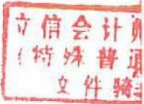 立信会计
(特殊普通
文件骑